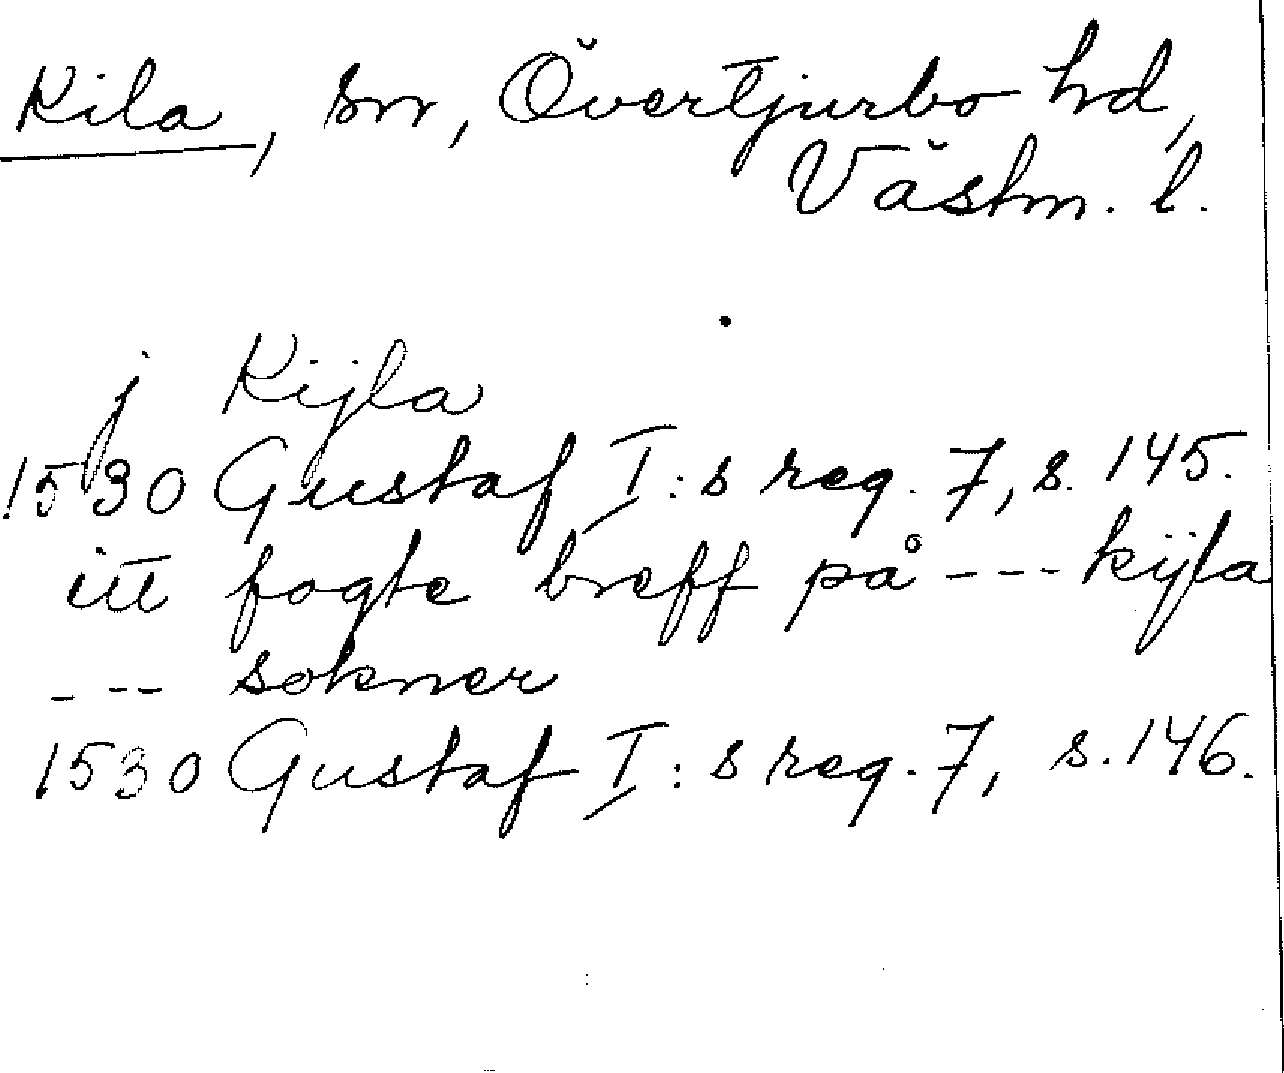 Kila, sn, Övertjurbo hd,
Västm. l.
j Kijla
1530 Gustaf I:s reg. 7, s. 145.
itt fogte breff på --- kijla
--- sokner
1530 Gustaf I:s reg. 7, s. 146.